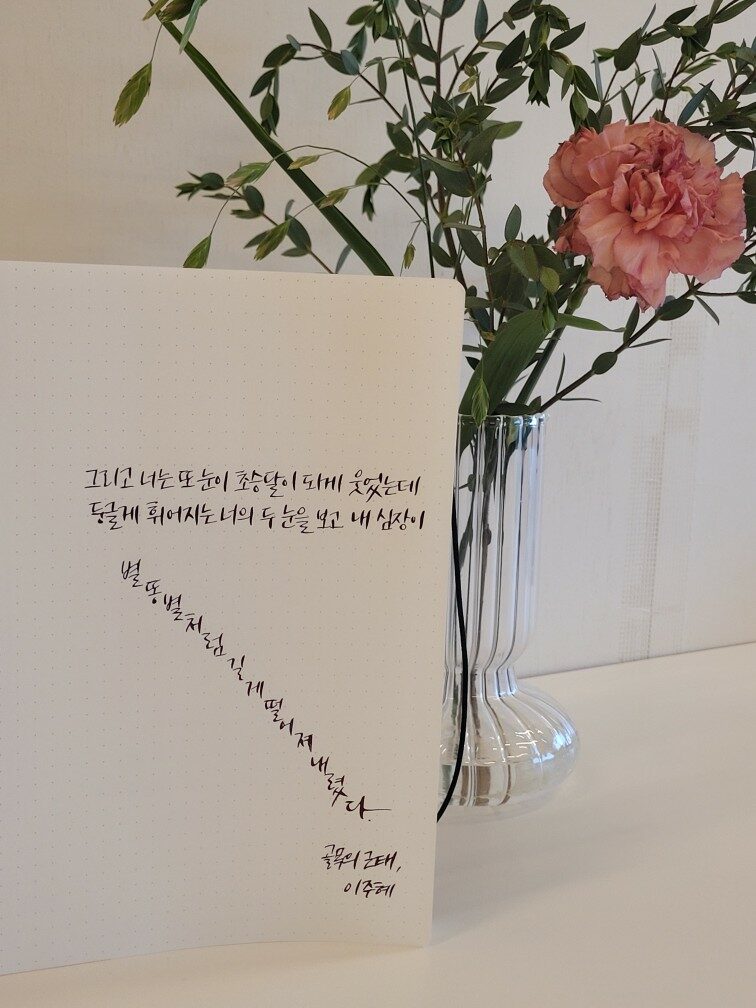 그리고 너는 또 눈이 초승달이 되게 웃었는데
둥글게 휘어지는 너의 두 눈을 보고 내 심장이
별똥별처럼 길게 떨어져 내렸다.
골목의 근태,
이주혜